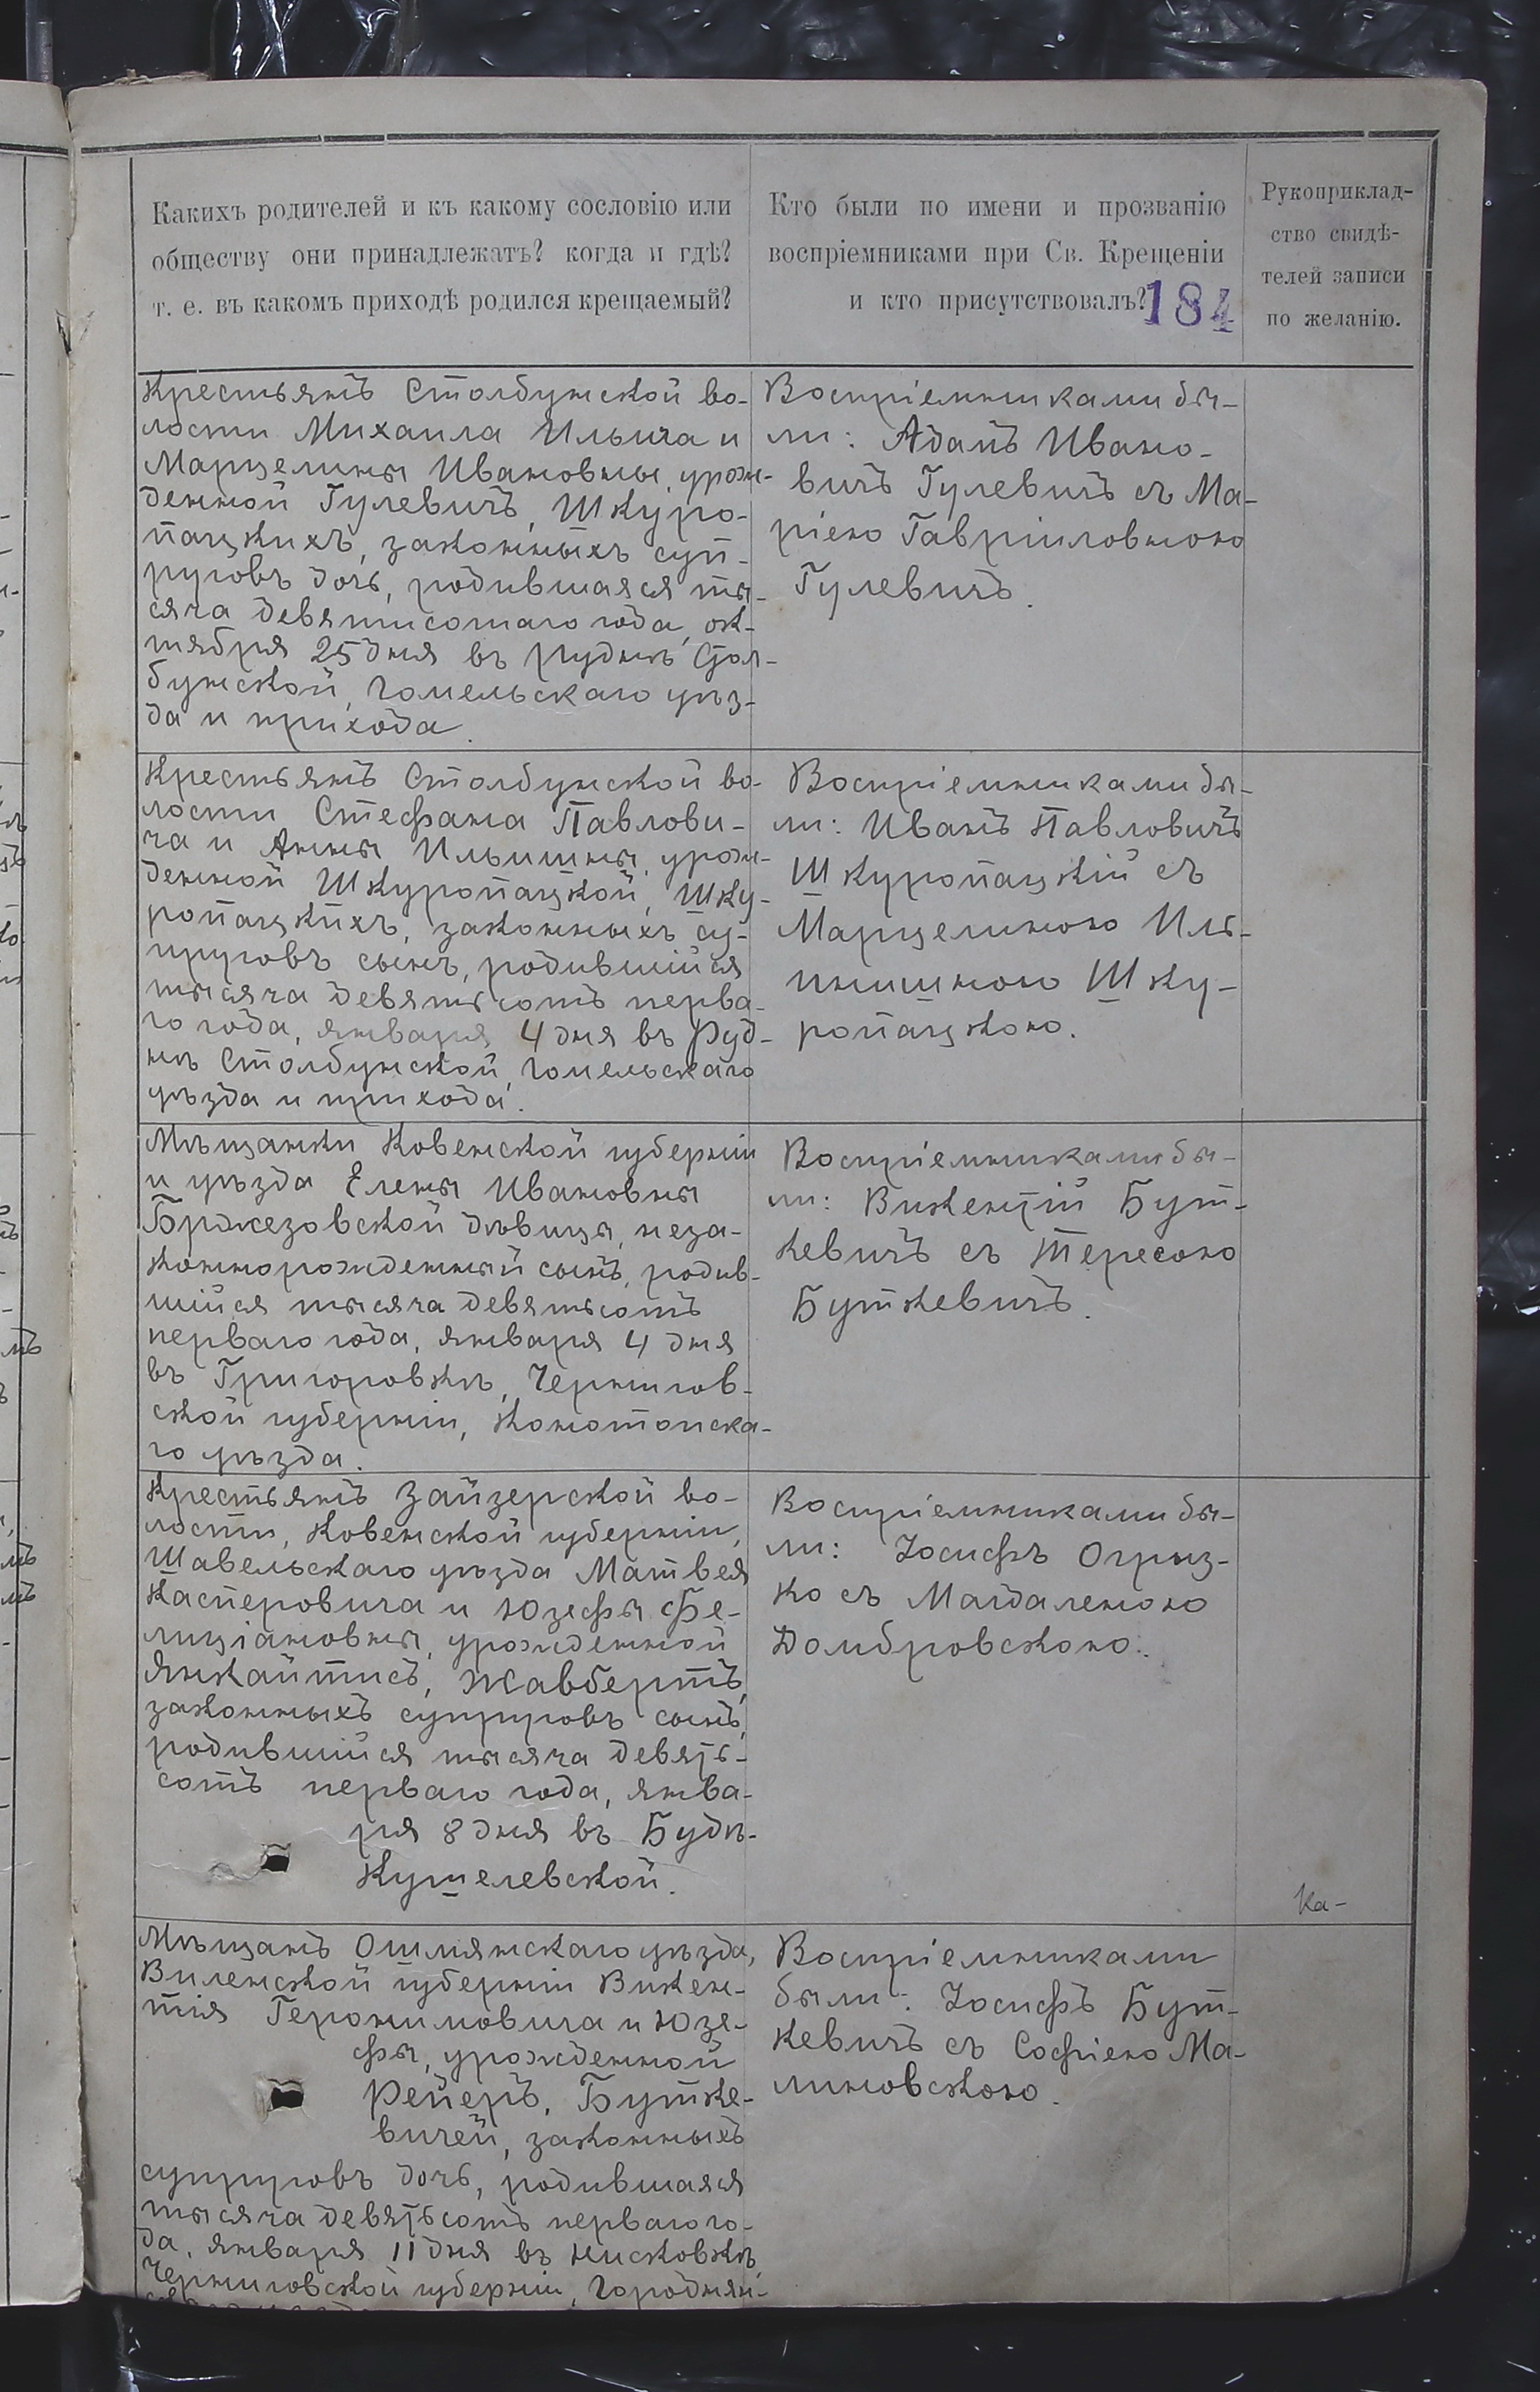 Какихъ родителей и къ какому сословію или
обществу они принадлежатъ? когда и гдѣ?
т. е. въ какомъ приходѣ родился крещаемый?
Кто были по имени и прозванію
воспріемниками при Св. Крещеніи
и кто присутствовалъ?
184
Рукоприклад-
ство свидѣ-
телей записи
по желанію.
Крестьянъ Столбунской во-
лости Михаила Ильича и
Марцелины Ивановны, урож-
денной Гулевичъ, Шкуро-
пацкихъ, законныхъ суп-
руговъ дочь, родившаяся ты-
сяча девятисотаго года, ок-
тября 25 дня въ Руднѣ Стол-
бунской, Гомельскаго уѣз-
да и прихода.
Воспріемниками бы-
ли: Адамъ Ивано-
вичъ Гулевичъ съ Ма-
ріею Гавріиловною
Гулевичъ.
Крестьянъ Столбунской во-
лости Стефана Павлови-
ча и Анны Ильишны, урож-
денной Шкуропацкой, Шку-
ропацкихъ, законныхъ су-
пруговъ сынъ, родившійся
тысяча девятьсотъ перва-
го года, января 4 дня въ Руд-
нѣ Столбунской, Гомельскаго
уѣзда и прихода.
Воспріемниками бы-
ли: Иванъ Павловичъ
Шкуропацкій съ
Марцелиною Иль-
инишною Шку-
ропацкою.
Мѣщанки Ковенской губерніи
и уѣзда Елены Ивановны
Бржезовской дѣвицы, неза-
коннорожденный сынъ, родив-
шійся тысяча девятьсотъ
перваго года, января 4 дня
въ Григоровкѣ, Чернигов-
ской губерніи, Конотопска-
го уѣзда.
Воспріемниками бы-
ли: Викентій Бут-
кевичъ съ Тересою
Буткевичъ.
Крестьянъ Зайзерской во-
лости, Ковенской губерніи,
Шавельскаго уѣзда Матвея
Касперовича и Юзефы Фе-
лиціановны, урожденной
Янкайтисъ, Жавбертъ,
законныхъ супруговъ сынъ,
родившійся тысяча девять-
сотъ перваго года, янва-
ря 8 дня въ Будѣ-
Кушелевской.
Воспріемниками бы-
ли: Іосифъ Огрыз-
ко съ Магдаленою
Домбровскою.
Ка-
Мѣщанъ Ошмянскаго уѣзда,
Виленской губерніи Викен-
тія Геронимовича и Юзе-
фы, урожденной
Рейеръ, Бутке-
вичей, законныхъ
супруговъ дочь, родившаяся
тысяча девятьсотъ перваго го-
да, января 11 дня въ Нисковкѣ
Черниговской губерніи, Городнян-
Воспріемниками
были: Іосифъ Бут-
кевичъ съ Софіею Ма-
линовскою.